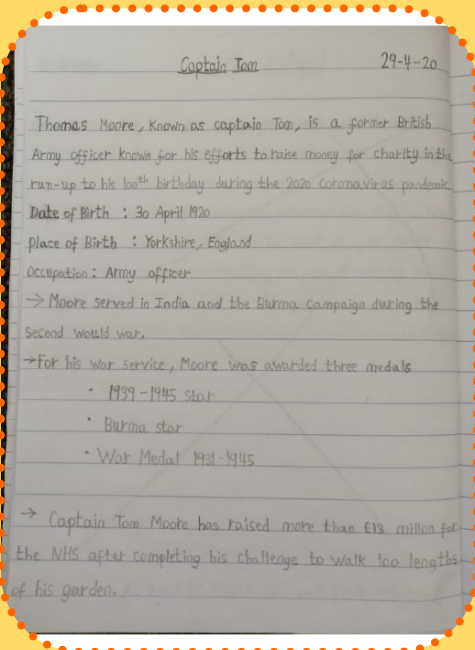 Captain Tom 29-4-20
Thomas Moore, known as captain Tom, is a former British
Army officer known for his efforts to raise money for charity in the
run-up to his 100th birthday during the 2020 coronavirus pandemic
Date of Birth : 30 April 1920
place of Birth : Yorkshire, England
Occupation: Army officer
→ Moore served in India and the Burma Campaign during the
second would war.
→ For his war service, Moore was awarded three medals
• 1939-1945 star
• Burma star
• War Medal 1931-1945
→ Captain Tom Moore has raised more than £13 millon for
the NHS after completing his challenge to walk 100 lengths
of his garden.